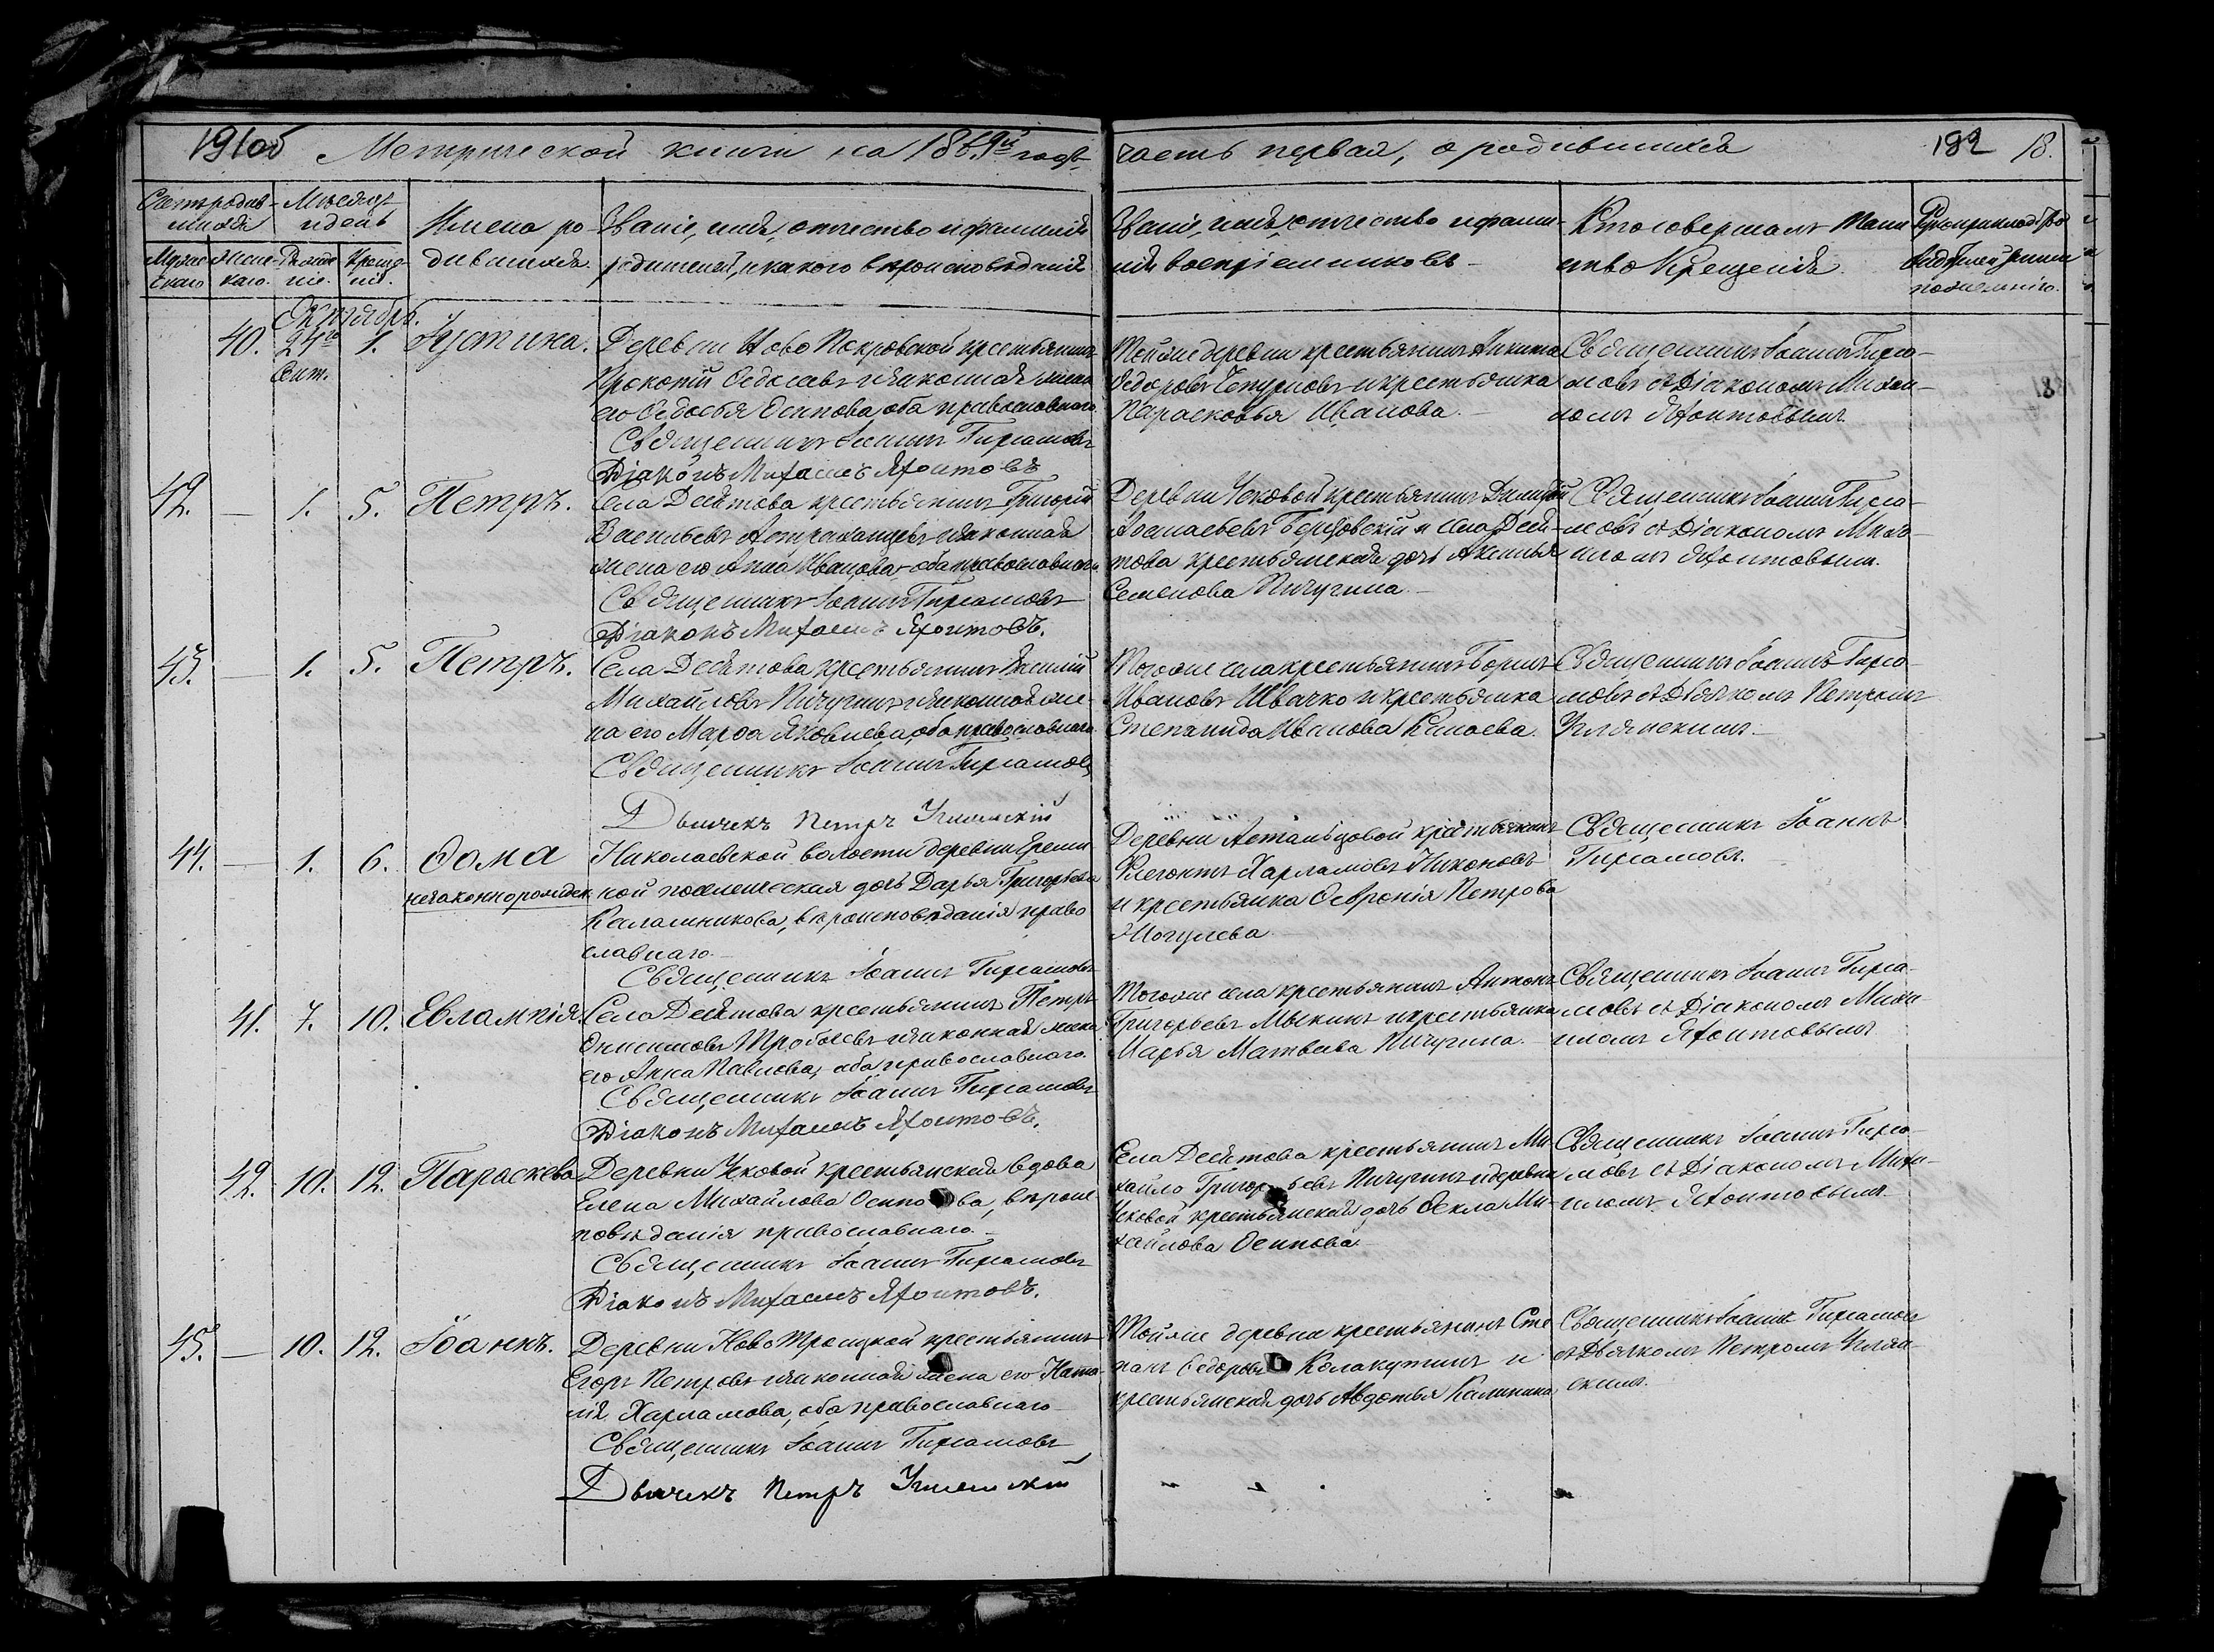 191об Метрической книги на 1869й годъ часть первая, о родившихся 192 18.
Счетъ родив-
шихся
Мѣсяцъ
и день
Имена ро-
дившихся.
Званіе, имя, отчество и фамилія
родителей, и какого вѣроисповѣданія
Званіе, имя, отчество и фами-
лія воспріемниковъ
Кто совершалъ Таин-
ство Крещенія.
Мужес
каго
Жен-
каго.
Рожде
ніе.
Креще-
нія.
Октябрь.
40. 24го 1. Іустина.
Сент.
Деревни Ново Покровской крестьянинъ
Прокопій Ѳедосѣевъ и законная жена
его Ѳедосья Осипова, оба православнаго.
Священникъ Іоаннъ Гирсамовъ
Діаконъ Михаилъ Яхонтовъ
Тойже деревни крестьянинъ Никита
Ѳедоровъ и крестьянка
Парасковья Иванова.
Священникъ Іоаннъ Гирса-
мовъ съ Діакономъ Михаи-
ломъ Яхонтовымъ
42. — 1. 5. Петръ.
Села Десятова крестьянинъ Григорій
Васильевъ Астраханцевъ и законная
жена его Анна Иванова, оба православнаго
Священникъ Іоаннъ Гирсамовъ
Діаконъ Михаилъ Яхонтовъ.
Деревни Усковой крестьянинъ Дмитрій
Аѳанасьевъ и села Деся-
това крестьянская дочь Аксинья
Семенова Пичугина.
Священникъ Іоаннъ Гирса-
мовъ съ Діакономъ Миха-
иломъ Яхонтовымъ.
43. — 1. 5. Петръ.
Села Десятова крестьянинъ Василій
Михайловъ Пичугинъ и законная же-
на его Марѳа Яковлева, оба православнаго
Священникъ Іоаннъ Гирсамовъ
Дьячекъ Петръ
Тогоже села крестьянинъ Борисъ
Ивановъ Швачко и крестьянка
Степанида Иванова Канаева.
Священникъ Іоаннъ Гирса-
мовъ съ Дьячкомъ Петромъ
44. — 1. 6. Ѳома
незаконнорожден
Николаевской волости деревни Ереми-
ной поселенческая дочь Дарья Григорьева
Калашникова, вѣроисповѣданія право
славнаго.
Священникъ Іоаннъ Гирсамовъ
Деревни крестьянинъ
Флегонтъ Харламовъ Никоновъ
и крестьянка Ѳевронія Петрова
Священникъ Іоаннъ
Гирсамовъ.
41. 7. 10. Евлампія.
Села Десятова крестьянинъ Петръ
Онисимовъ и законная жена
его Анна Павлова, оба православнаго.
Священникъ Іоаннъ Гирсамовъ
Діаконъ Михаилъ Яхонтовъ.
Тогоже села крестьянинъ Антонъ
Григорьевъ Мыкинъ и крестьянка
Марья Матвѣева Пичугина.
Священникъ Іоаннъ Гирса-
мовъ съ Діакономъ Миха-
иломъ Яхонтовымъ
42. 10. 12. Параскева
Деревни Усковой крестьянская вдова
Елена Михайлова Осипова, вѣроис-
повѣданія православнаго.
Священникъ Іоаннъ Гирсамовъ
Діаконъ Михаилъ Яхонтовъ.
Села Десятова крестьянинъ Ми-
хайло Григорьевъ Пичугинъ и деревни
Усковой крестьянская дочь Ѳекла Ми-
хайлова Осипова
Священникъ Іоаннъ Гирса-
мовъ съ Діакономъ Миха-
иломъ Яхонтовымъ
45. — 10. 12. Іоаннъ.
Деревни Ново Троицкой крестьянинъ
Егоръ Петровъ и законная жена его
Харламова, оба православнаго
Священникъ Іоаннъ Гирсамовъ
Дьячекъ Петръ
Тойже деревни крестьянинъ Сте
панъ Ѳедоровъ Колакутинъ и
крестьянская дочь Авдотья Калинина
Священникъ Іоаннъ Гирсамовъ
съ Дьячкомъ Петромъ